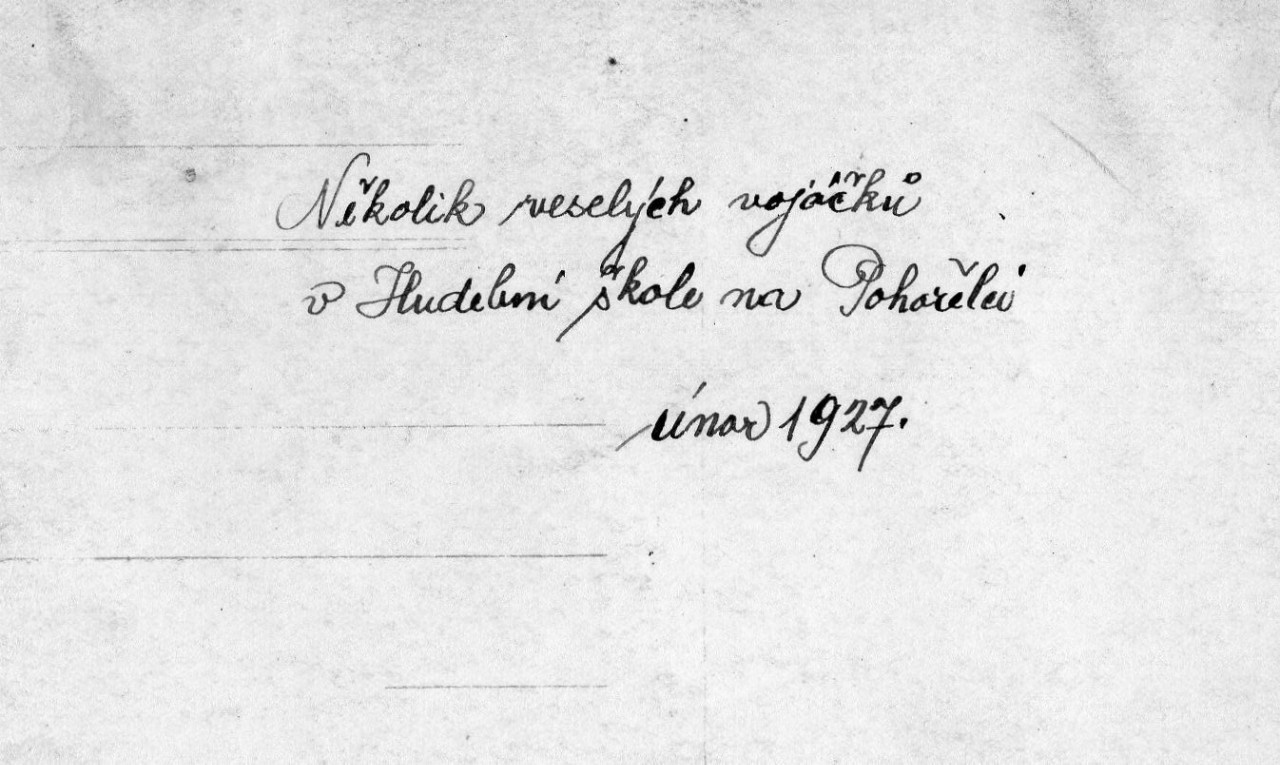 Několik veselých vojáčků
v Hudební škole na Pohořelci
únor 1927.